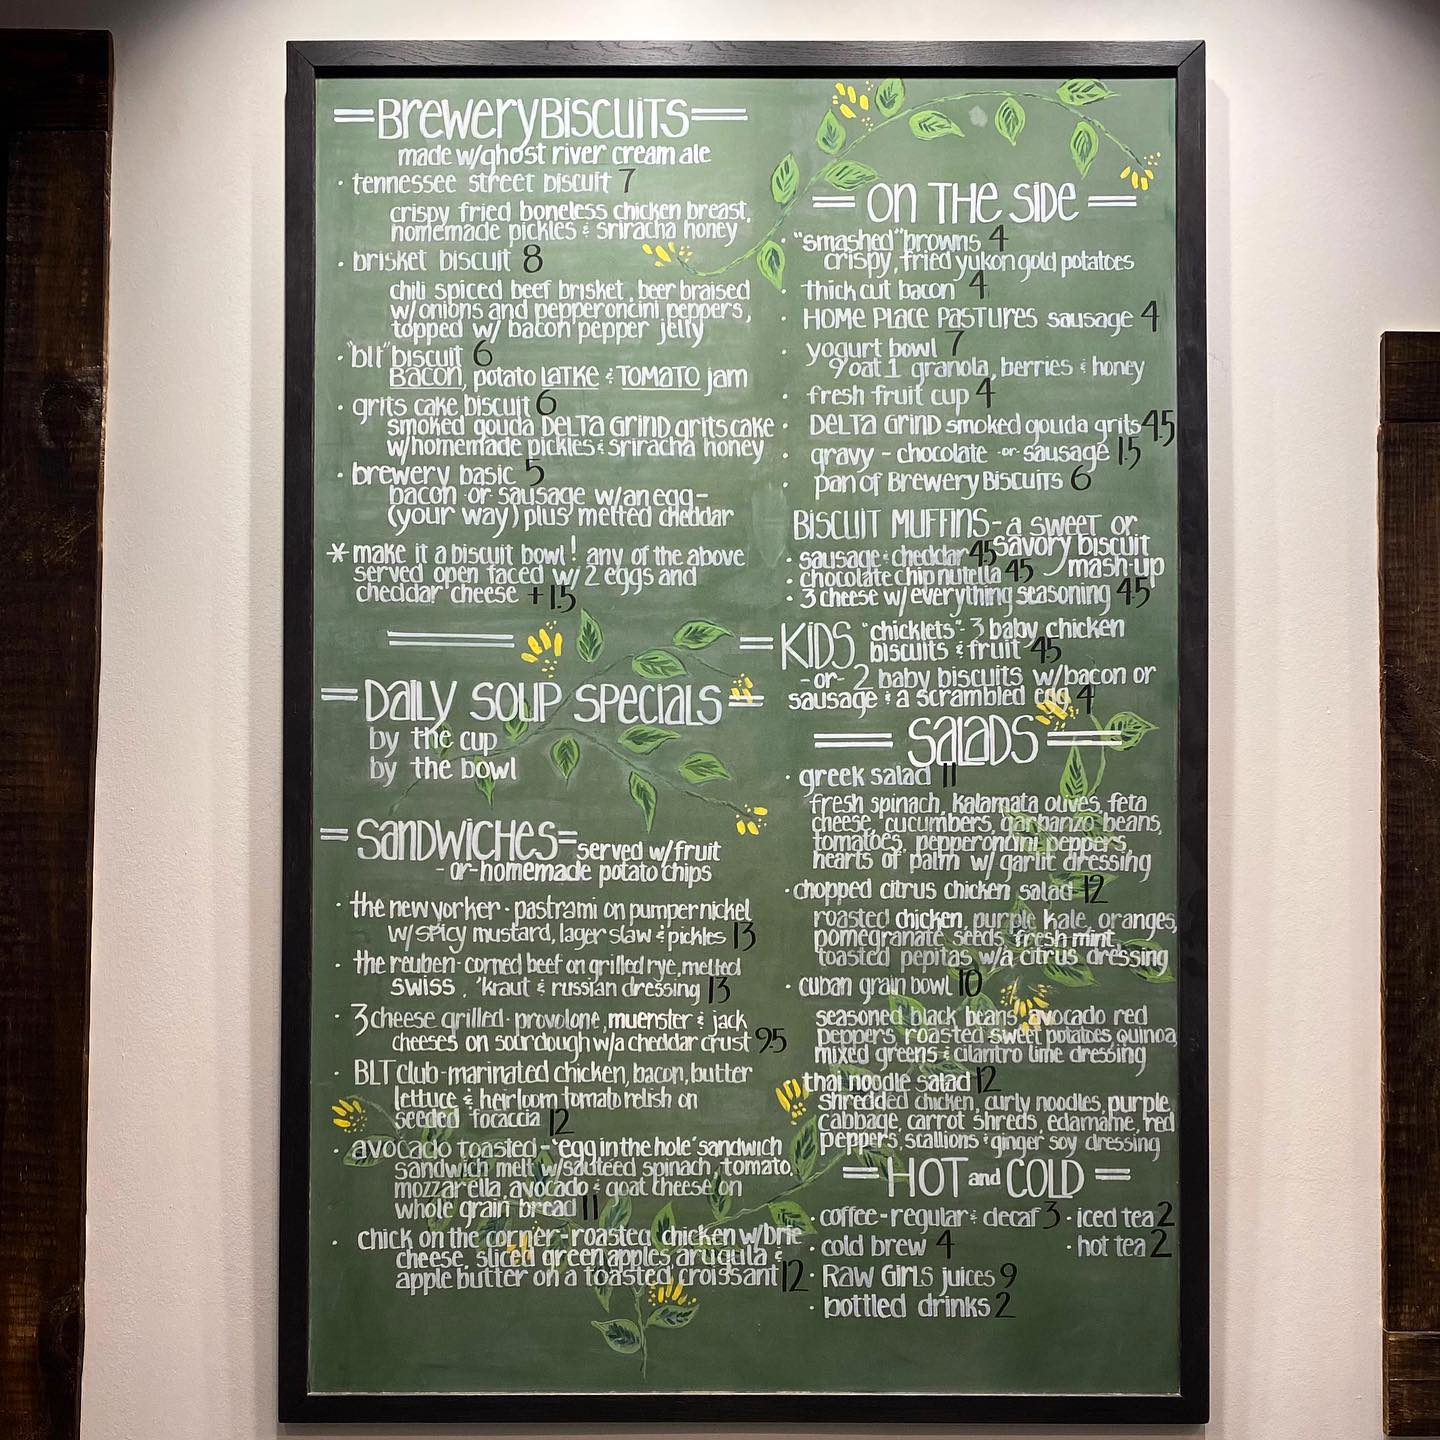 Brewery Biscuits
made w/ghost river cream ale
· tennessee street biscuit 7
crispy fried boneless chicken breast,
homemade pickles & sriracha honey
· brisket biscuit 8
chili spiced beef brisket, beer braised
w/onions and pepperoncini peppers,
topped w/ bacon pepper jelly
· "blt" biscuit 6
BACON, potato LATKE & TOMATO jam
· grits cake biscuit 6
smoked gouda DELTA GRIND grits cake
w/homemade pickles & sriracha honey
· brewery basic 5
bacon or sausage w/an egg-
(your way) plus melted cheddar
* make it a biscuit bowl! any of the above
served open faced w/ 2 eggs and
cheddar cheese +1.5
Daily Soup Specials
by the cup
by the bowl
Sandwiches served w/fruit
-or-homemade potato chips
· the new yorker - pastrami on pumpernickel
w/spicy mustard, lager slaw & pickles 13
· the reuben - corned beef on grilled rye, melted
swiss, 'kraut & russian dressing 13
· 3 cheese grilled - provolone, muenster & jack
cheeses on sourdough w/a cheddar crust 9.5
· BLT club - marinated chicken, bacon, butter
lettuce & heirloom tomato relish on
seeded focaccia 12
· avocado toasted - 'egg in the hole' sandwich
sandwich melt w/sautéed spinach, tomato,
mozzarella, avocado & goat cheese on
whole grain bread 11
· chick on the corner - roasted chicken w/brie
cheese, sliced green apples, arugula &
apple butter on a toasted croissant 12
On The Side
· "smashed" browns 4
crispy, fried yukon gold potatoes
· thick cut bacon 4
· HOME PLACE PASTURES sausage 4
· yogurt bowl 7
9 oat 1 granola, berries & honey
· fresh fruit cup 4
· DELTA GRIND smoked gouda grits 4.5
· gravy - chocolate -or- sausage 1.5
· pan of Brewery Biscuits 6
BISCUIT MUFFINS - a sweet or
savory biscuit
mash-up
· sausage & cheddar 4.5
· chocolate chip nutella 4.5
· 3 cheese w/ everything seasoning 4.5
KIDS "chicklets" - 3 baby chicken
biscuits & fruit 4.5
-or- 2 baby biscuits w/bacon or
sausage & a scrambled egg 4
Salads
· greek salad 11
fresh spinach, kalamata olives, feta
cheese, cucumbers, garbanzo beans,
tomatoes, pepperoncini peppers,
hearts of palm w/ garlic dressing
· chopped citrus chicken salad 12
roasted chicken, purple kale, oranges,
pomegranate seeds, fresh mint,
toasted pepitas w/a citrus dressing
· cuban grain bowl 10
seasoned black beans, avocado red
peppers, roasted sweet potatoes quinoa,
mixed greens & cilantro lime dressing
thai noodle salad 12
shredded chicken, curly noodles, purple
cabbage, carrot shreds, edamame, red
peppers, scallions & ginger soy dressing
HOT and COLD
· coffee - regular & decaf 3 · iced tea 2
· cold brew 4 · hot tea 2
· RAW GIRLS juices 9
· bottled drinks 2